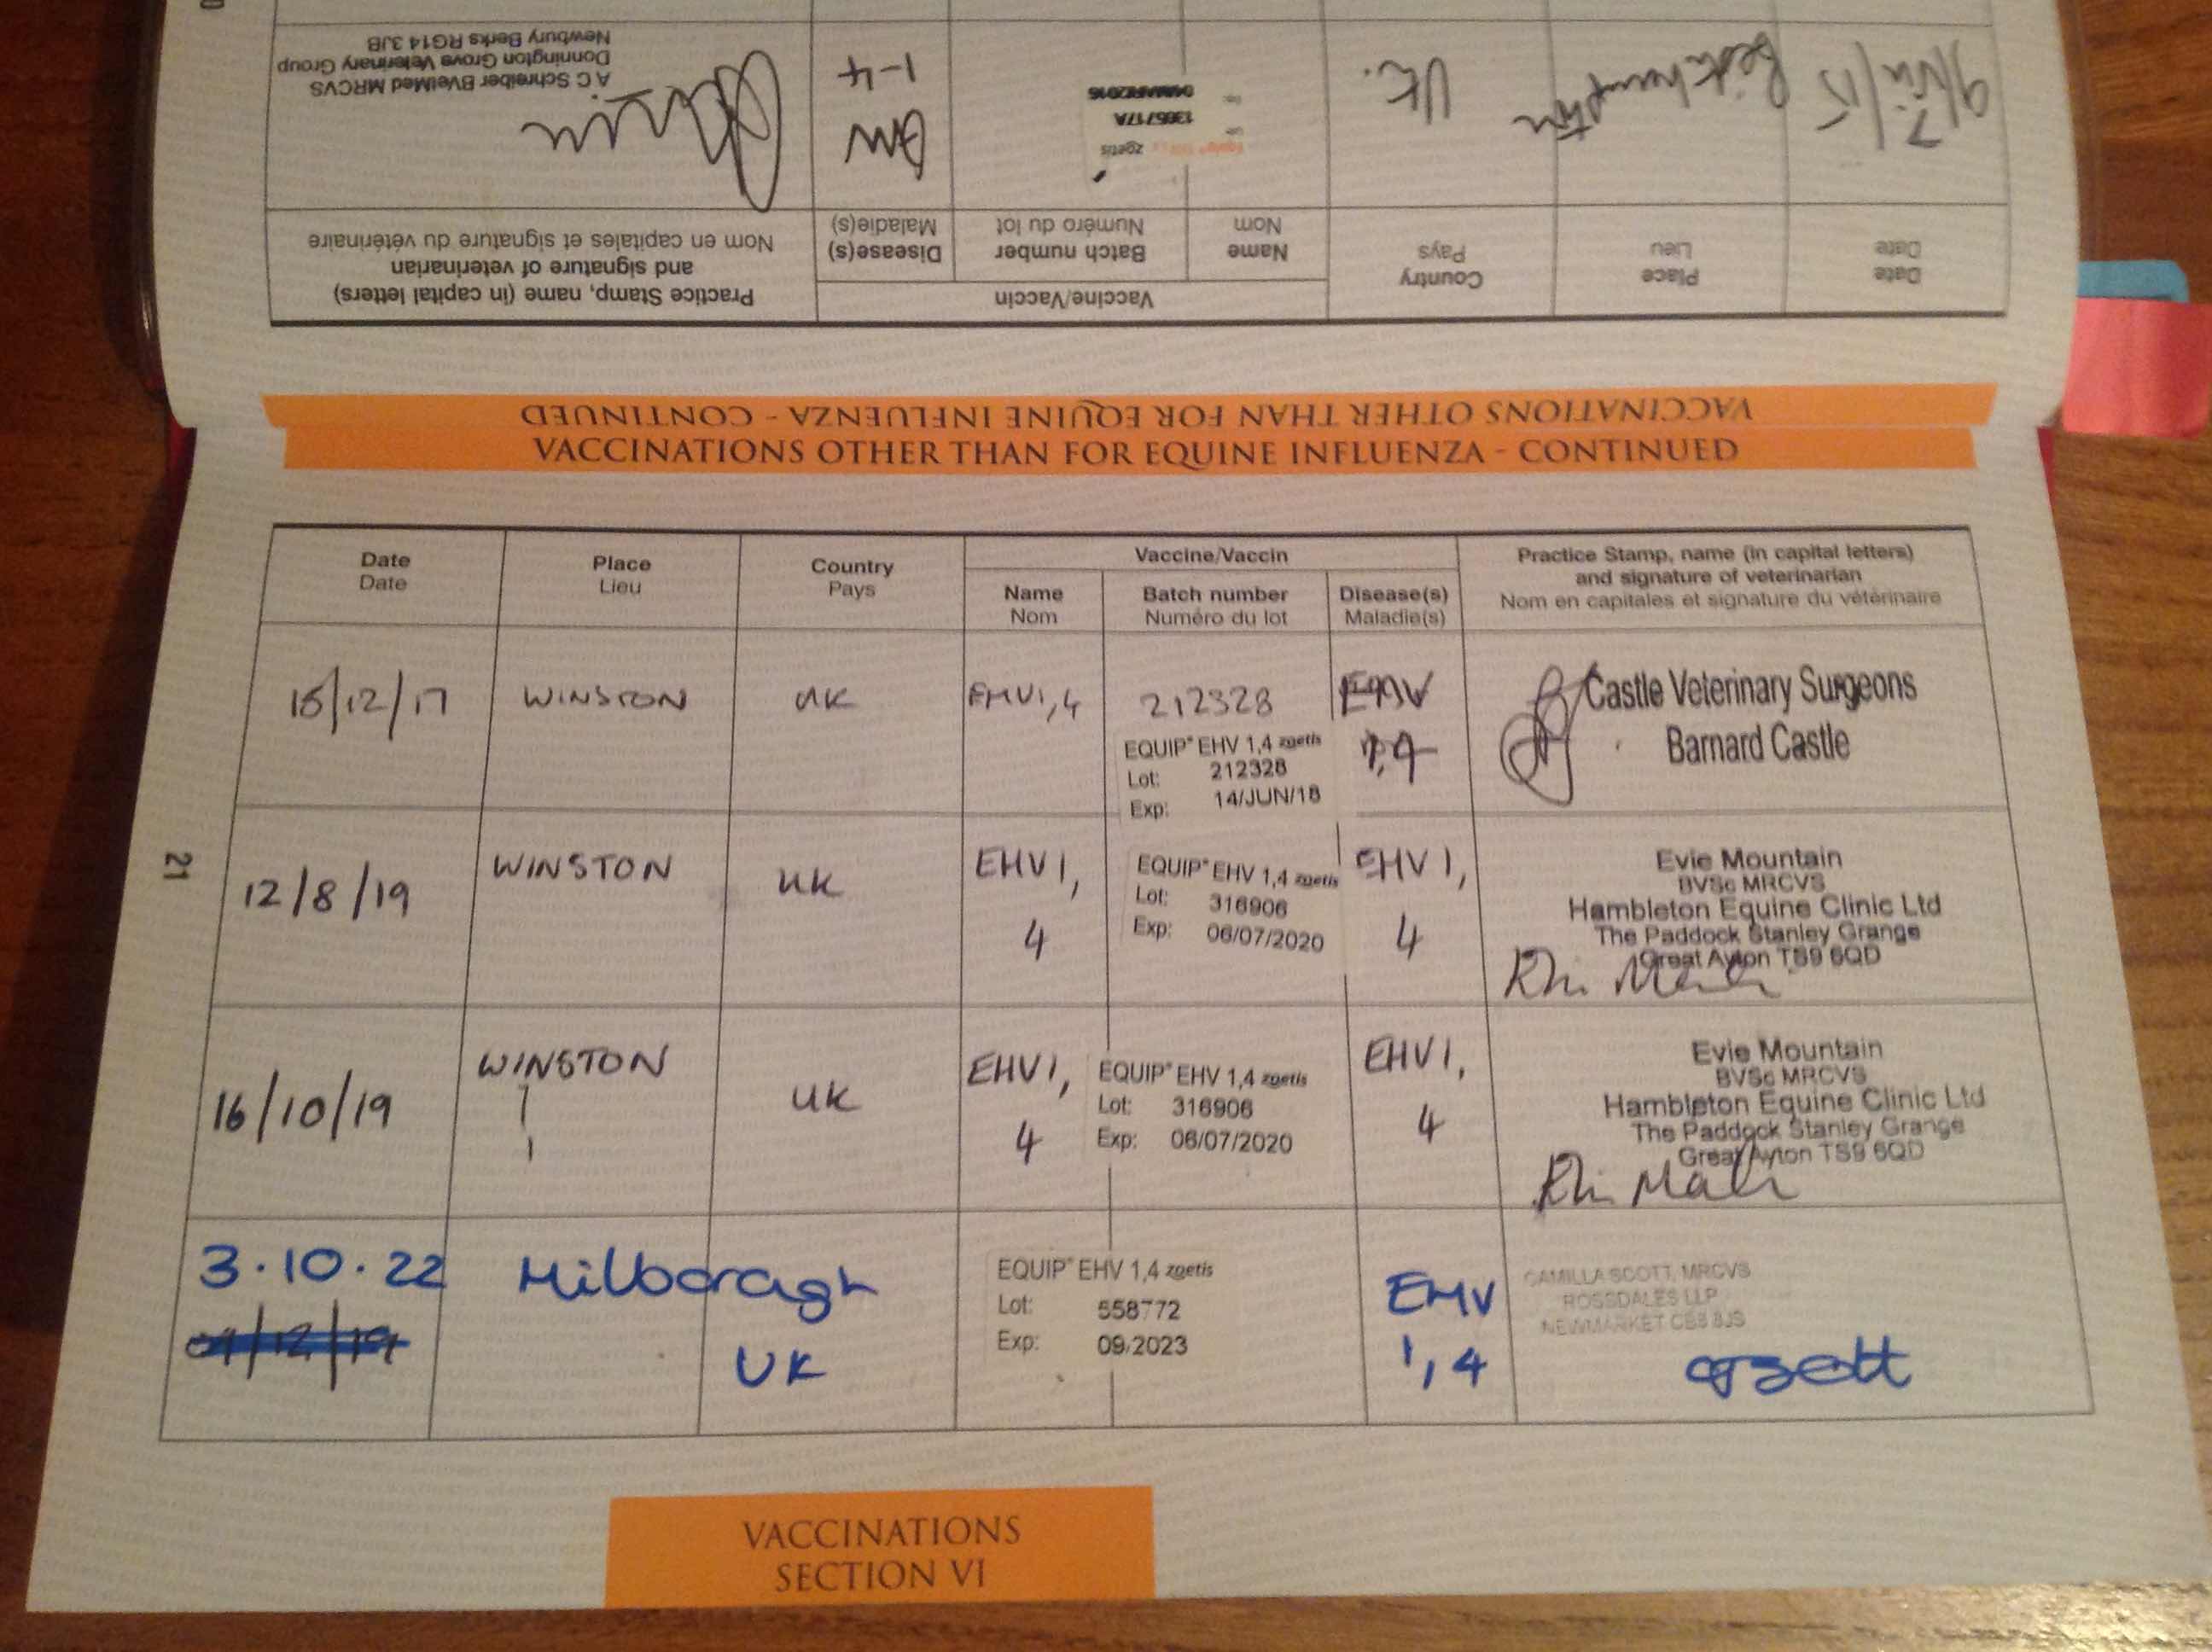 A C Schreiber BVetMed MRCVS
Donnington Grove Veterinary Group
Newbury Berks RG14 3JB
UK.
1-4
zoetis
1365717A
Date
Date
Place
Lieu
Country
Pays
Vaccine/Vaccin
Name
Nom
Batch number
Numéro du lot
Disease(s)
Maladie(s)
Practice Stamp, name (in capital letters)
and signature of veterinarian
Nom en capitales et signature du vétérinaire
VACCINATIONS OTHER THAN FOR EQUINE INFLUENZA - CONTINUED
VACCINATIONS OTHER THAN FOR EQUINE INFLUENZA - CONTINUED
Date
Date
Place
Lieu
Country
Pays
Vaccine/Vaccin
Name
Nom
Batch number
Numéro du lot
Disease(s)
Maladie(s)
Practice Stamp, name (in capital letters)
and signature of veterinarian
Nom en capitales et signature du vétérinaire
15/12/17
WINSTON
UK
EHV1,4
212328
EQUIP® EHV 1,4 zoetis
Lot: 212328
Exp: 14/JUN/18
EHV
1,4
Castle Veterinary Surgeons
Barnard Castle
12/8/19
WINSTON
UK
EHV1,
4
EQUIP® EHV 1,4 zoetis
Lot: 316906
Exp: 06/07/2020
EHV1,
4
Evie Mountain
BVSc MRCVS
Hambleton Equine Clinic Ltd
The Paddock Stanley Grange
Great Ayton TS9 6QD
16/10/19
WINSTON
UK
EHV1,
4
EQUIP® EHV 1,4 zoetis
Lot: 316906
Exp: 06/07/2020
EHV1,
4
Evie Mountain
BVSc MRCVS
Hambleton Equine Clinic Ltd
The Paddock Stanley Grange
Great Ayton TS9 6QD
3.10.22
Hilborough
UK
EQUIP® EHV 1,4 zoetis
Lot: 558772
Exp: 09.2023
EHV
1,4
CAMILLA SCOTT, MRCVS
ROSSDALES LLP
NEWMARKET CB8 8JS
21
VACCINATIONS
SECTION VI